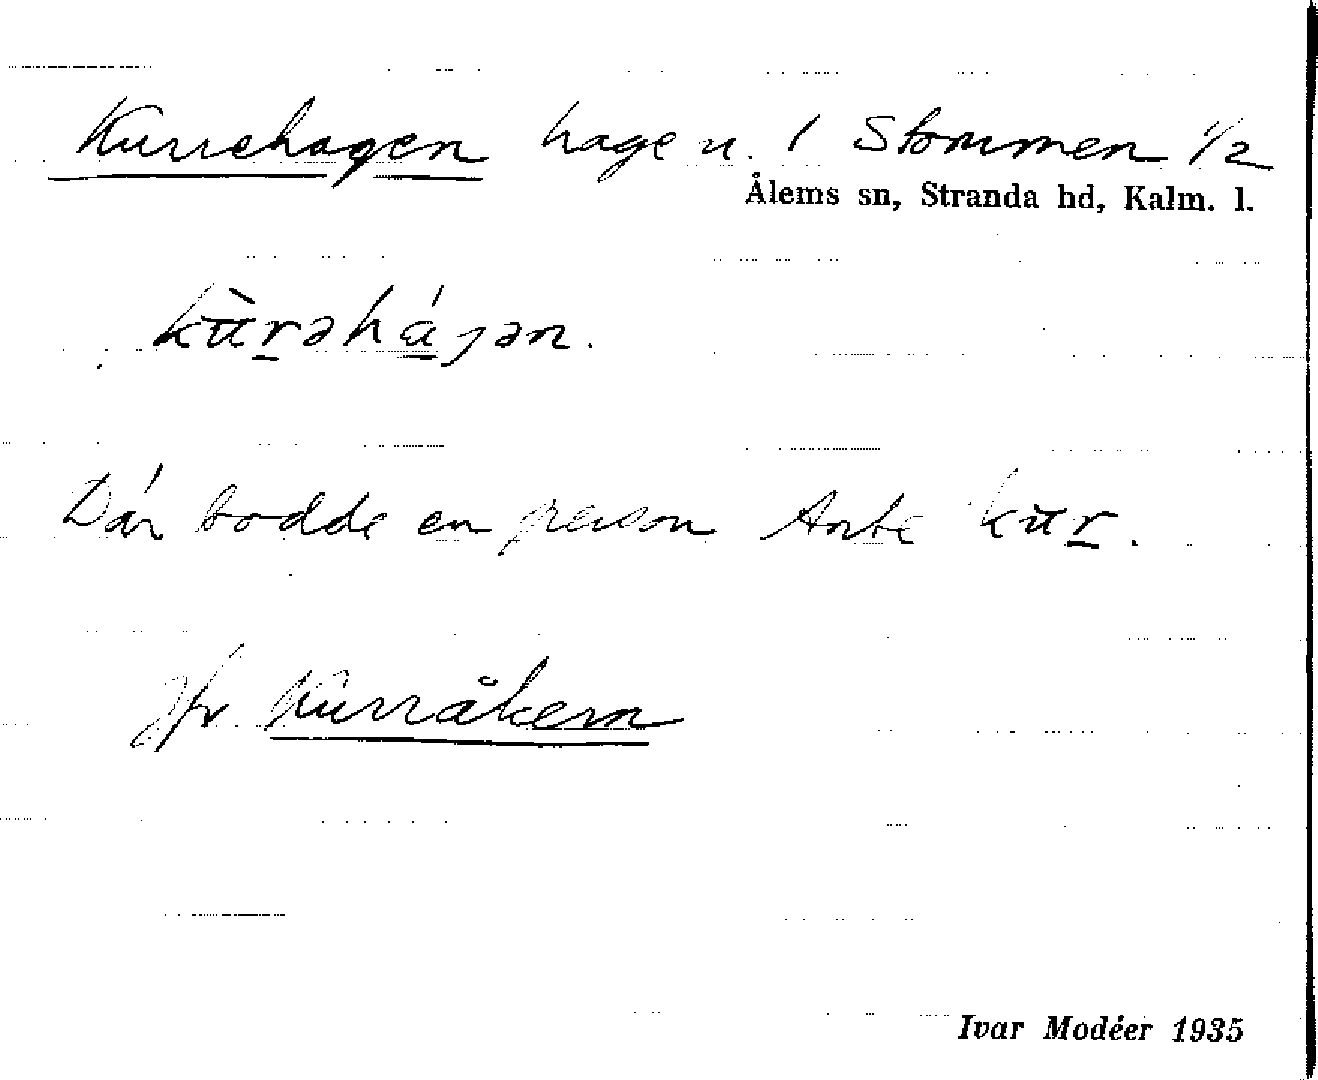 Kurrehagen hage u. 1 Stommen 1/2
Ålems sn, Stranda hd, Kalm. l.
kùrəháɡən.
Där bodde en person Ante kur.
Jfr Kurråkern
Ivar Modéer 1935